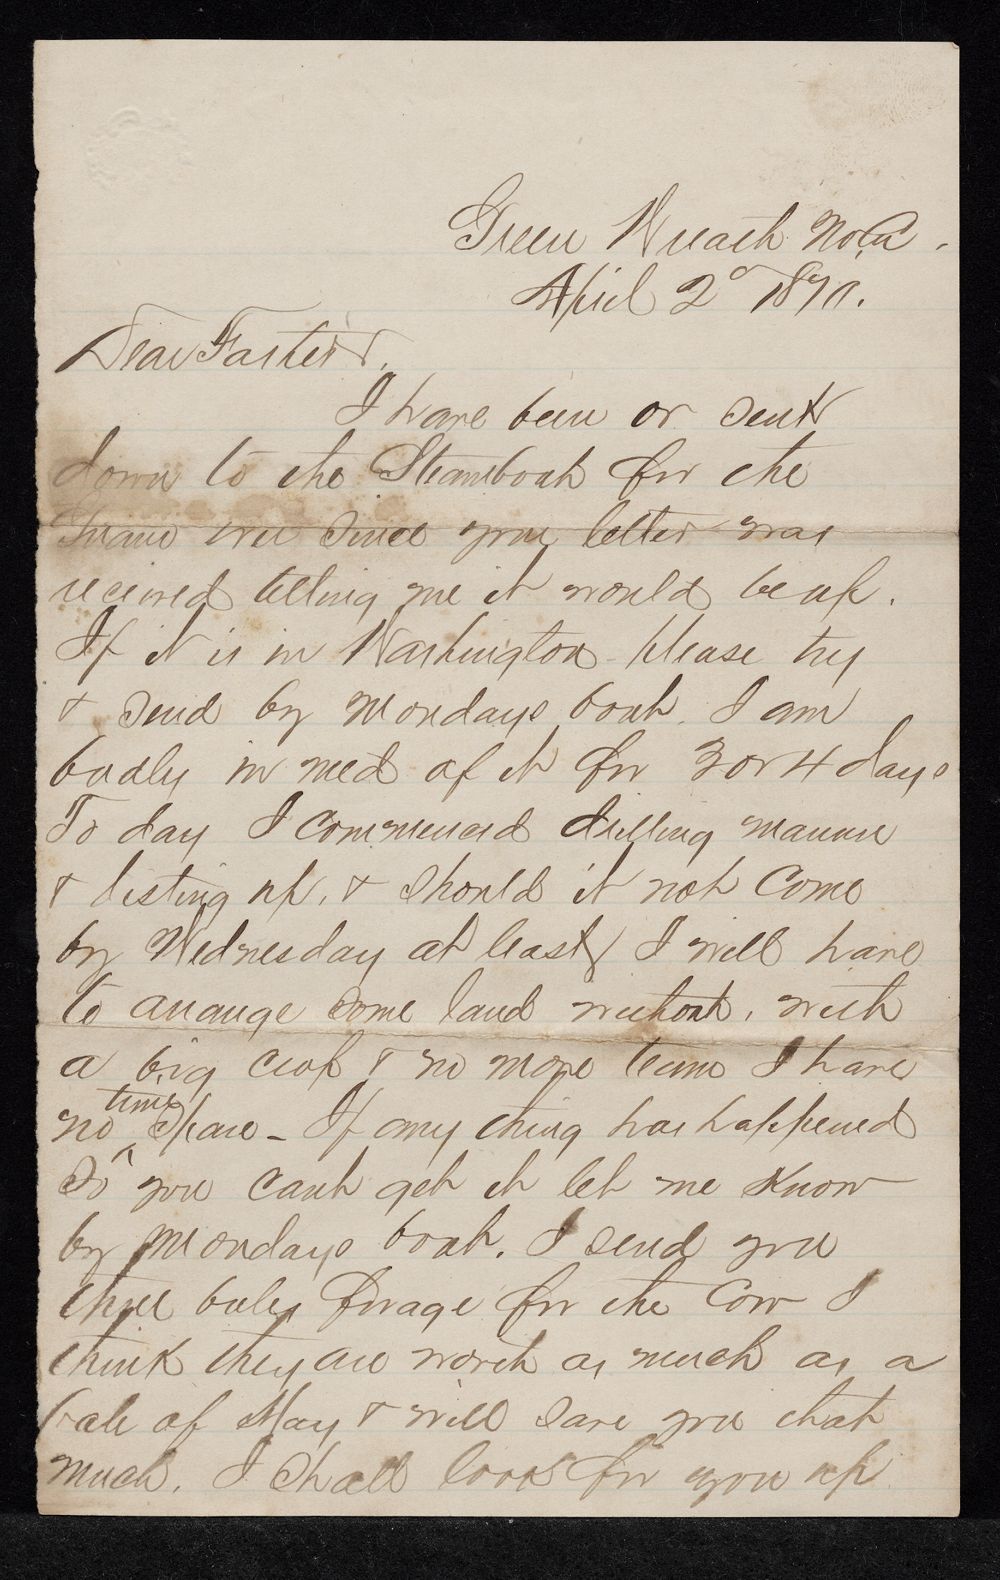 Green Wreath No.Ca.
April 2d 1870.
Dear Father,
I have been or sent
down to the Steamboat for the
Guano ever since your letter was
recieved telling me it would be up.
If it is in Washington please try
& send by Mondays boat. I am
badly in need of it for 3 or 4 days
To day I commenced drilling manure
& listing up, & should it not come
by Wednesday at least, I will have
to arrange some land without, with
a big crop & no more team I have
no time spare - If any thing has happened
So you cant get it let me Know
by Mondays boat. I send you
three bales forage for the Cow I
think they are worth as much as a
bale of Hay & will save you that
much. I shall look for you up